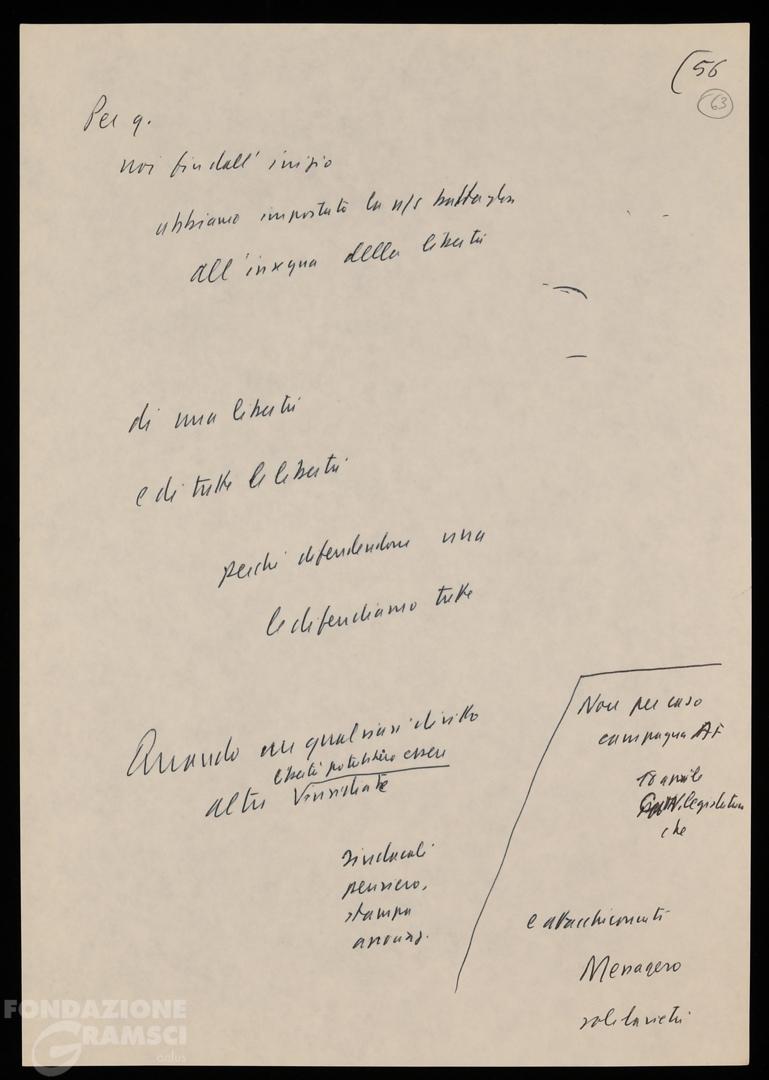 (56
63
Per q.
noi fin dall' inizio
abbiamo impostato la n/s battaglia
all'insegna della libertà
di una libertà
e di tutte le libertà
perché difendendone una
le difendiamo tutte
Quando un qualsiasi diritto
libertà potrebbero essere
altre vinsidiate
sindacali
pensiero,
stampa
associaz.
Non per caso
campagna AF
18 aprile
legislatura
che
e attacchi contr
Messagero
solidarietà
FONDAZIONE
GRAMSCI
onlus